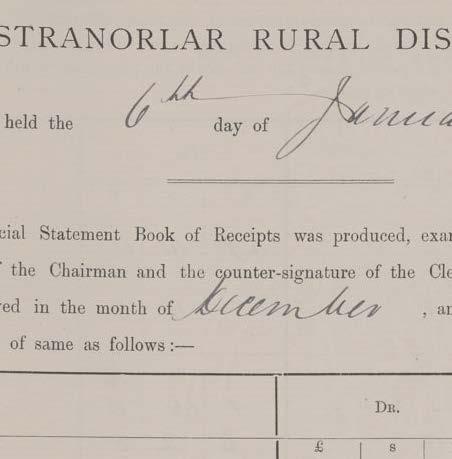 STRANORLAR RURAL DIS
held the 6th day of Janua
cial Statement Book of Receipts was produced, exa
f the Chairman and the counter-signature of the Cle
ed in the month of December , an
of same as follows :—
DR.
£ s